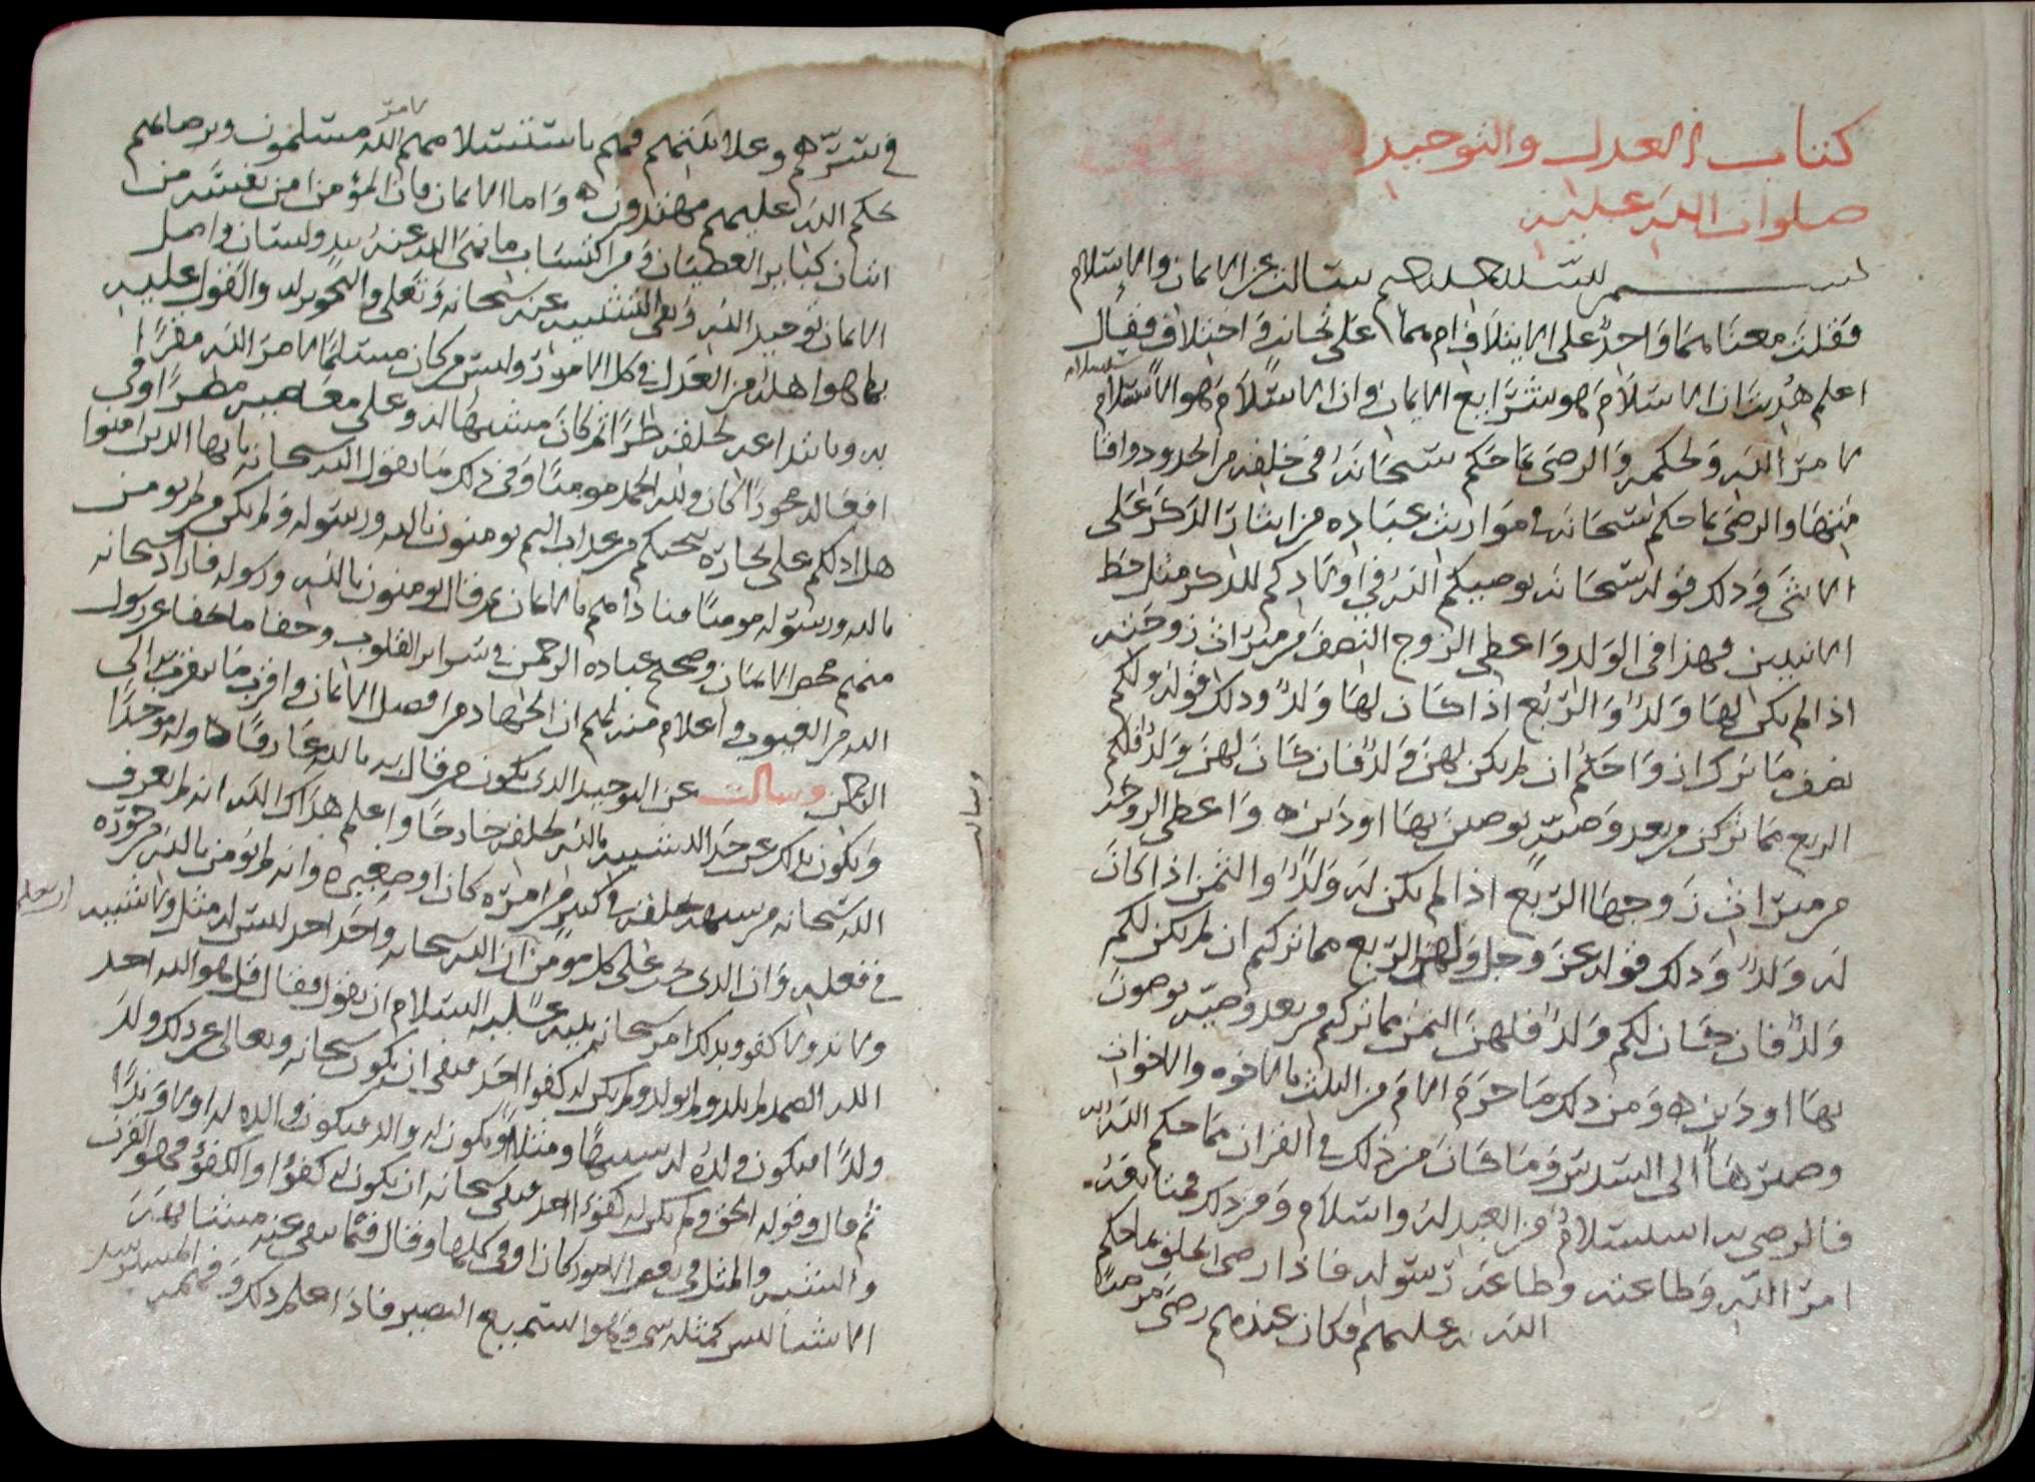 كتاب العدل والتوحيد
صلوات الله عليه
بسم الله الرحمن الرحيم سالت عن الايمان والاسلام
فقلت معناهما واحد على الايتلاف ام هما على تجانف واختلاف فقال
اعلم هديت ان الاسلام هو شرايع الايمان وان الاسلام هو الاستسلام
لامر الله ولحكمه والرضى بما حكم سبحانه في خلقه من الحدود واقامتها
منها والرضى بما حكم سبحانه في مواريث عباده من ايثار الذكر على
الانثى وذلك قوله سبحانه يوصيكم الله في اولادكم للذكر مثل حظ
الانثيين فهذا في الولد واعطى الزوج النصف من ميراث زوجته
اذا لم يكن لها ولد والربع اذا كان لها ولد وذلك قوله ولكم
نصف ما ترك ازواجكم ان لم يكن لهن ولد فان كان لهن ولد فلكم
الربع مما تركن من بعد وصية يوصين بها او دين واعطى الزوجة
من ميراث زوجها الربع اذا لم يكن له ولد والثمن اذا كان
له ولد وذلك قوله عز وجل ولهن الربع مما تركتم ان لم يكن لكم
ولد فان كان لكم ولد فلهن الثمن مما تركتم من بعد وصية توصون
بها او دين ومن ذلك ما حرم الام من الثلث بالاخوه والاخوات
وصيرها الى السدس وما كان من ذلك في القران مما حكم الله به
فالرضى به استسلام من العبد له واسلام ومن ذلك متابعة
امر الله وطاعته وطاعة رسوله فاذا رضي الخلق بما حكم
الله به عليهم فكان عندهم رضى مرضيا
في سرهم وعلانيتهم فهم باستسلامهم لامر الله مسلمون وبرضاهم
بحكم الله عليهم مهتدون واما الايمان فان المؤمن امن نفسه من
اتيان كباير العصيان ومن اكتساب ما نهى الله عنه بيد ولسان واصل
الايمان توحيد الله ونفي التشبيه عنه سبحانه وتعلى والتجوير له والقول عليه
بما هو اهله من العدل في كل الامور وليس من كان مستسلما لامر الله مقرا
به وبانشاء خلقه طرا ثم كان مشبها له وعلى معاصيه مصرا وفي
افعاله مجورا كان ولله الحمد مومنا وفي ذلك ما يقول الله سبحانه يا ايها الذين امنوا
هل ادلكم على تجارة تنجيكم من عذاب اليم تومنون بالله ورسوله ولم يكن من لم يومن
بالله ورسوله مومنا فناداهم بالايمان ثم قال تومنون بالله ورسوله فاراد سبحانه
منهم محض الايمان وصحيح عباده الرحمن في سراير القلوب وخفا ما خفا عن رسول
الله من الغيوب واعلام منه لهم ان الجهاد من افضل الايمان واقرب ما يقرب الى
الرحمن وسالت عن التوحيد الذي يكون من قال به بالله عارفا وله موحدا
ويكون بذلك عن حد التشبيه بالله لخلقه خارجا واعلم هداك الله انه لم يعرف
الله سبحانه من شبهه بخلقه في كبير من امره كان او صغيره وانه لم يومن بالله من جوره
في فعله وان الذي يجب على كل مؤمن ان يعلم ان الله سبحانه واحد احد ليس له مثل ولا شبيه
ولا ند ولا كفو وبذلك امر سبحانه نبيه عليه السلام ان يقول فقال قل هو الله احد
الله الصمد لم يلد ولم يولد ولم يكن له كفوا احد فنفى ان يكون سبحانه وتعالى عن ذلك ولد
ولدا فيكون ولده له شبيها ومثلا او يكون له والد فيكون والده له اولا وبديا
ثم قال وقوله الحق ولم يكن له كفوا احد فنفى سبحانه ان يكون له كفوا والكفؤ فهو القرن
والشبيه والمثل في بعض الامور كان او في كلها وقال فيما نفى عنه من مشابهة
الاشيا ليس كمثله شي وهو السميع البصير فاذا علم ذلك وفهمه
وسالت